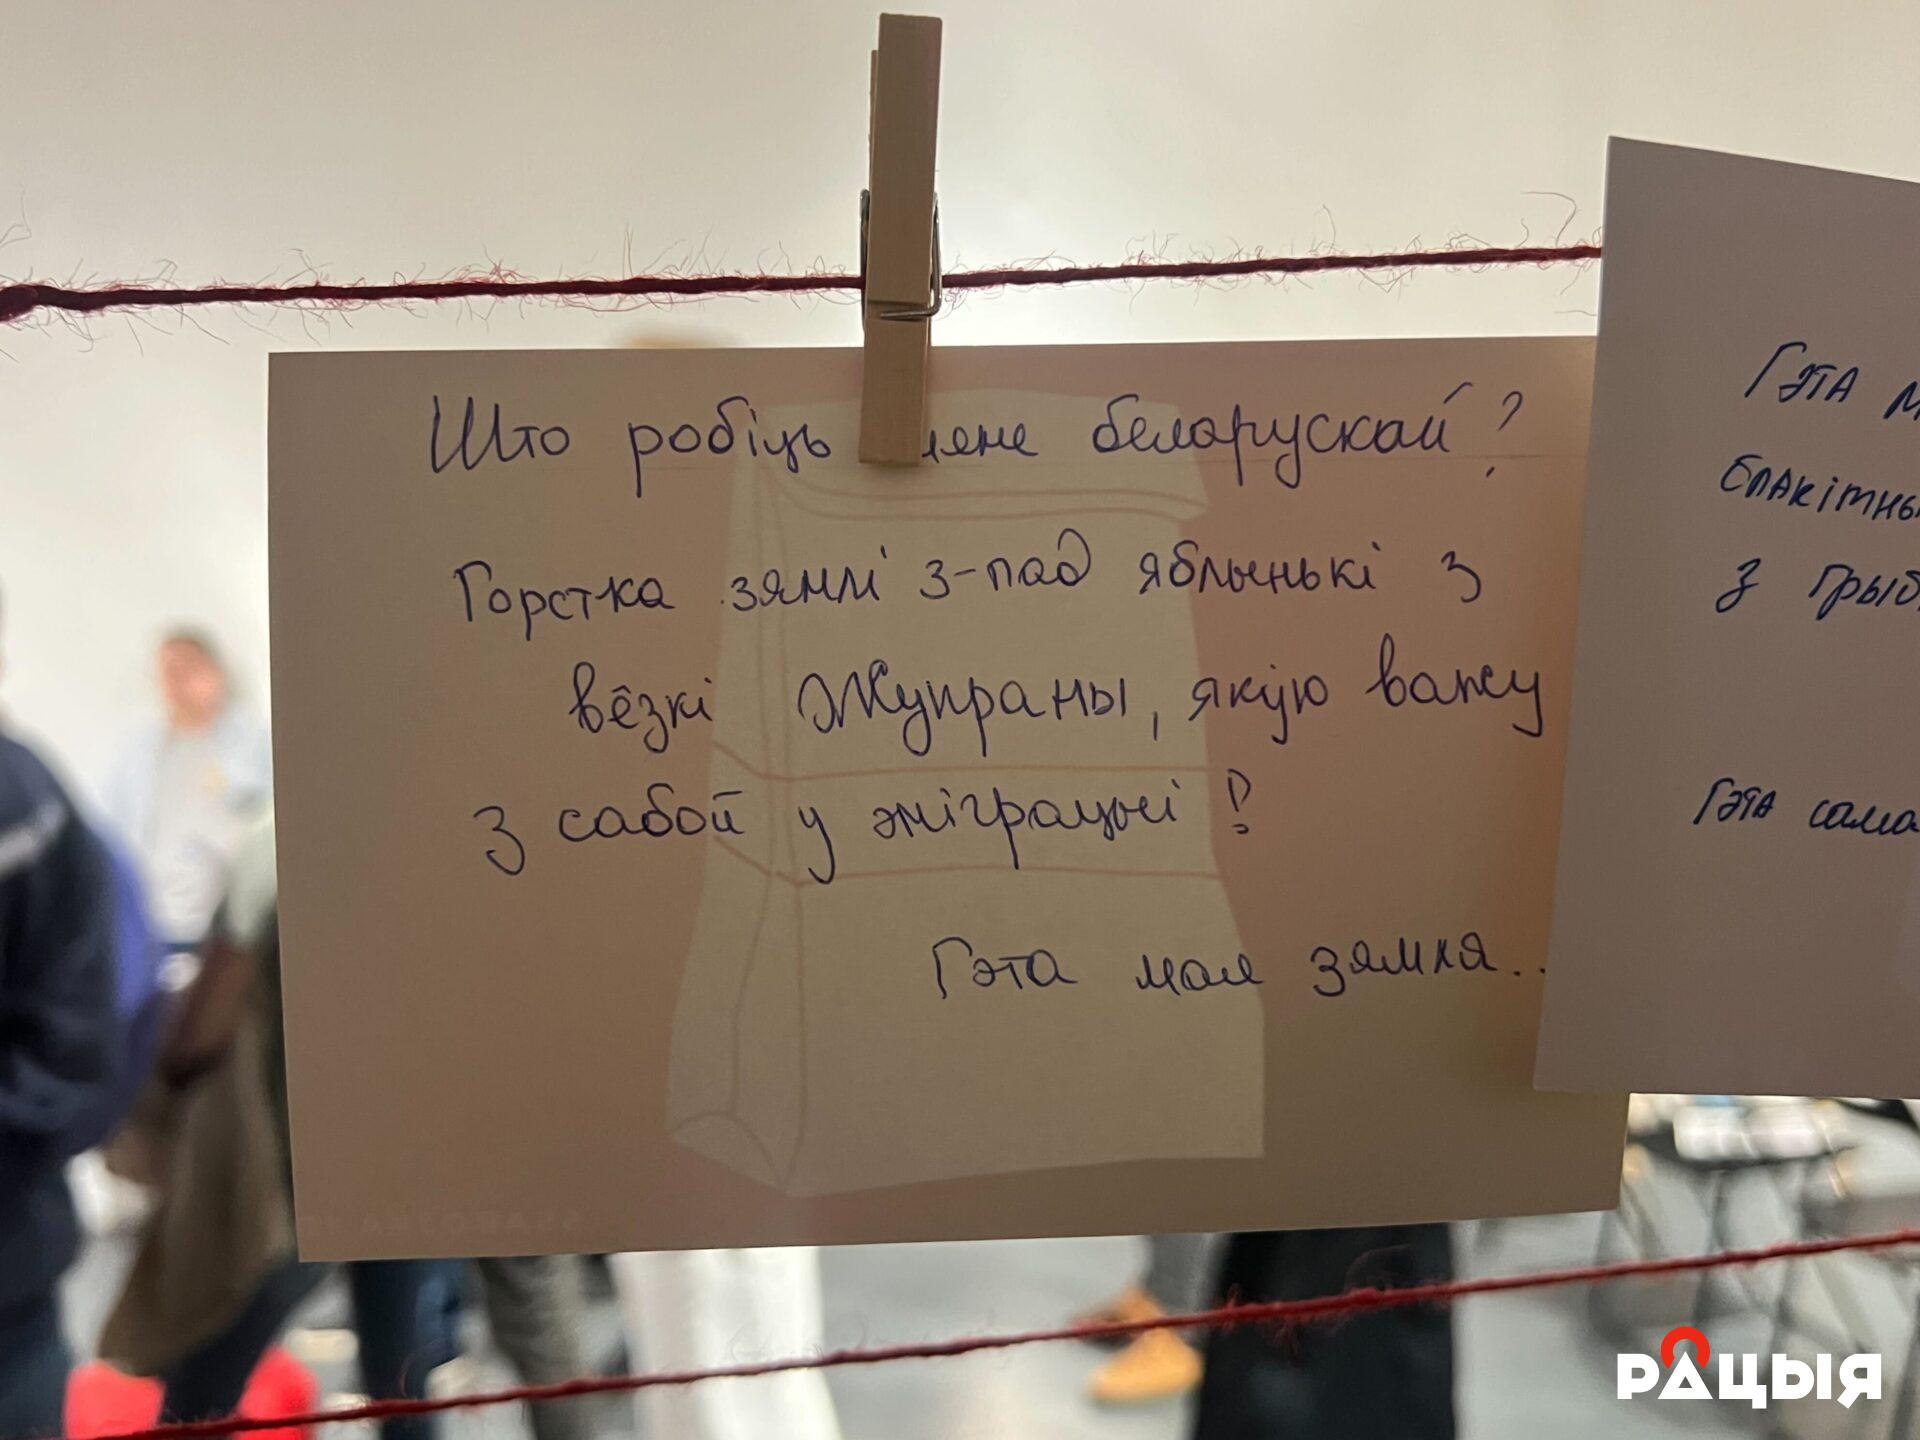 Што робіць мяне беларускай?
Горстка зямлі з-пад яблынькі з
вёзкі Жупраны, якую важу
з сабой у эміграцыі!
Гэта мая зямля..
Гэта
блакітны
з грыб
Гэта сама
РАЦЫЯ